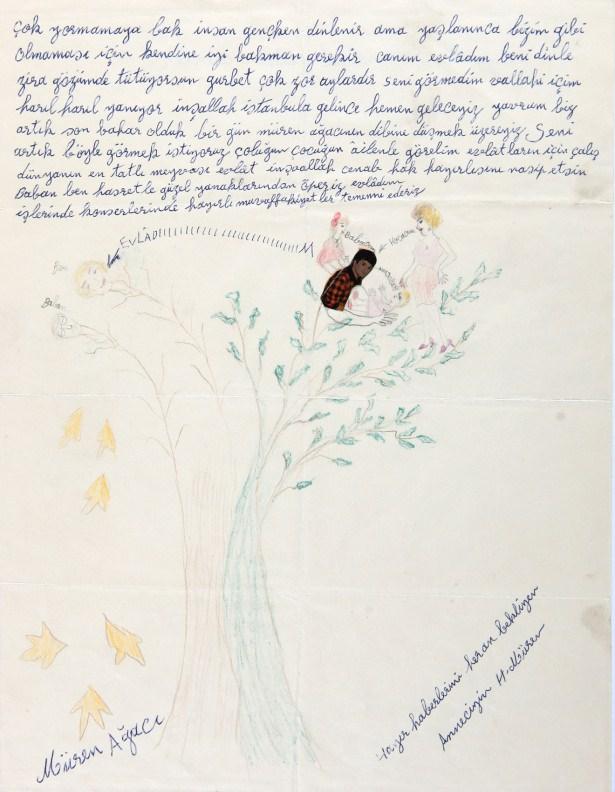 Çok yormamaya bak insan gençken dinlenir ama yaşlanınca bizim gibi
olmaması için kendine iyi bakman gerekir canım evlâdım beni dinle
zira gözümde tütüyorsun gurbet çok zor aylardır seni görmedim vallahi içim
harıl harıl yanıyor inşallah istanbula gelince hemen geleceğiz yavrum biz
artık son bahar olduk bir gün müren ağacının dibine düşmek üzereyiz Seni
artık böyle görmek istiyoruz çoluğun çocuğun âilenle görelim evlâtların için çalış
dünyanın en tatlı meyvası evlât inşaallah cenabı hak hayırlısını nasip etsin
Baban ben hasretle güzel yanaklarından öperiz evlâdım
işlerinde konserlerinde hayırlı muvaffakiyetler temenni ederiz
EVLÂDIIIIIIIIIIIIIIIIIIIIIIIM
Ben
Baban
Müren Ağacı
Hayır haberlerini heran bekliyen
Anneciğin H. Müren